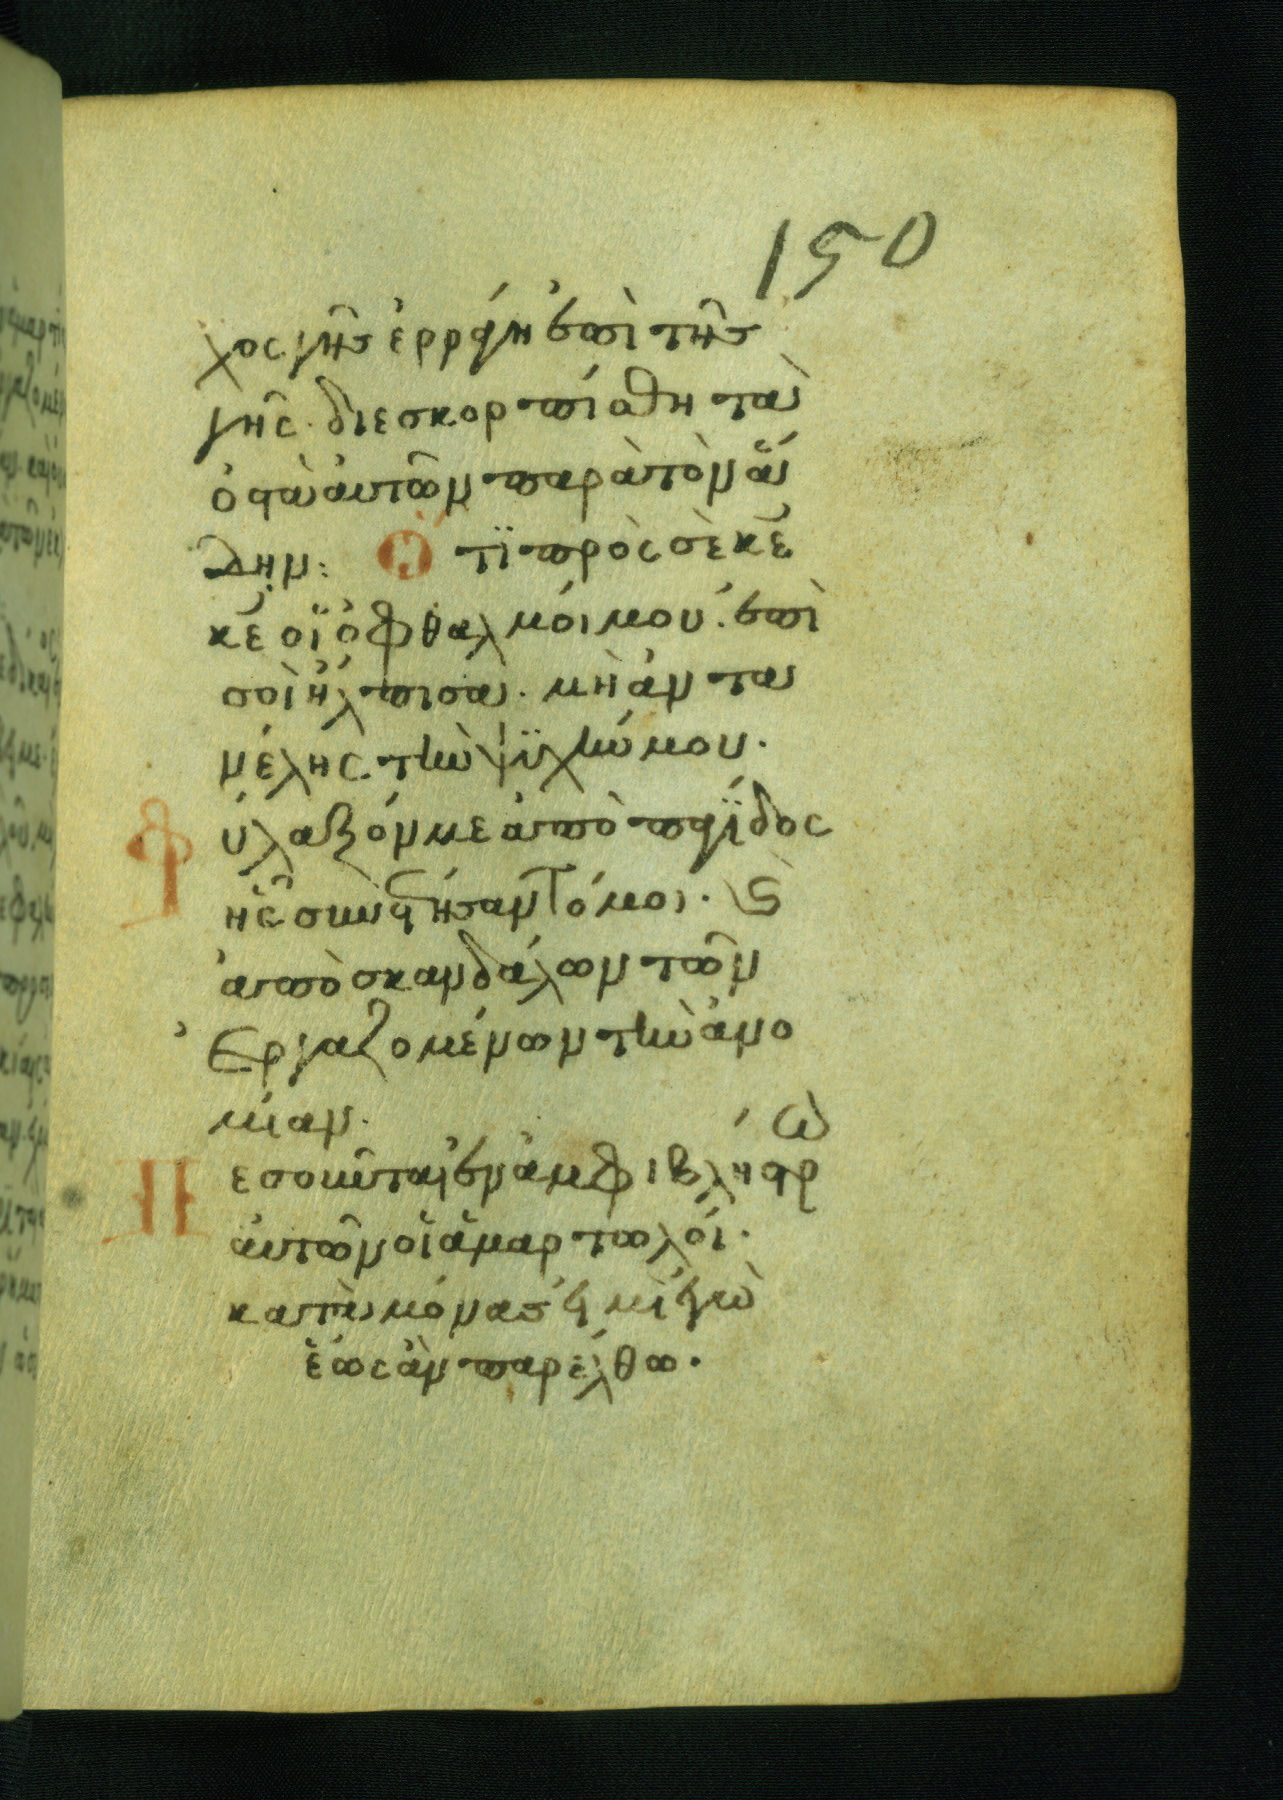 150
χος γῆς ἐρράγη ἐπὶ τῆς
γῆς· διεσκορπίσθη τὰ
ὀστὰ αὐτῶν παρὰ τὸν ἅ
δην: Ὅτι πρὸς σὲ κε
κε οἱ ὀφθαλμοί μου· ἐπὶ
σοὶ ἤλπισα· μὴ ἀντα
νέλης τὴν ψυχήν μου·
Φύλαξόν με ἀπὸ παγΐδος
ἧς συνεστήσαντό μοι· ϛ
ἀπὸ σκανδάλων τῶν
ἐργαζομένων τὴν ἀνο
μίαν·
Πεσοῦνται ἐν ἀμφιβλήστρω
αὐτῶν οἱ ἁμαρτωλοί·
καταμόνας εἰμὶ ἐγὼ
ἕως ἂν παρέλθω·